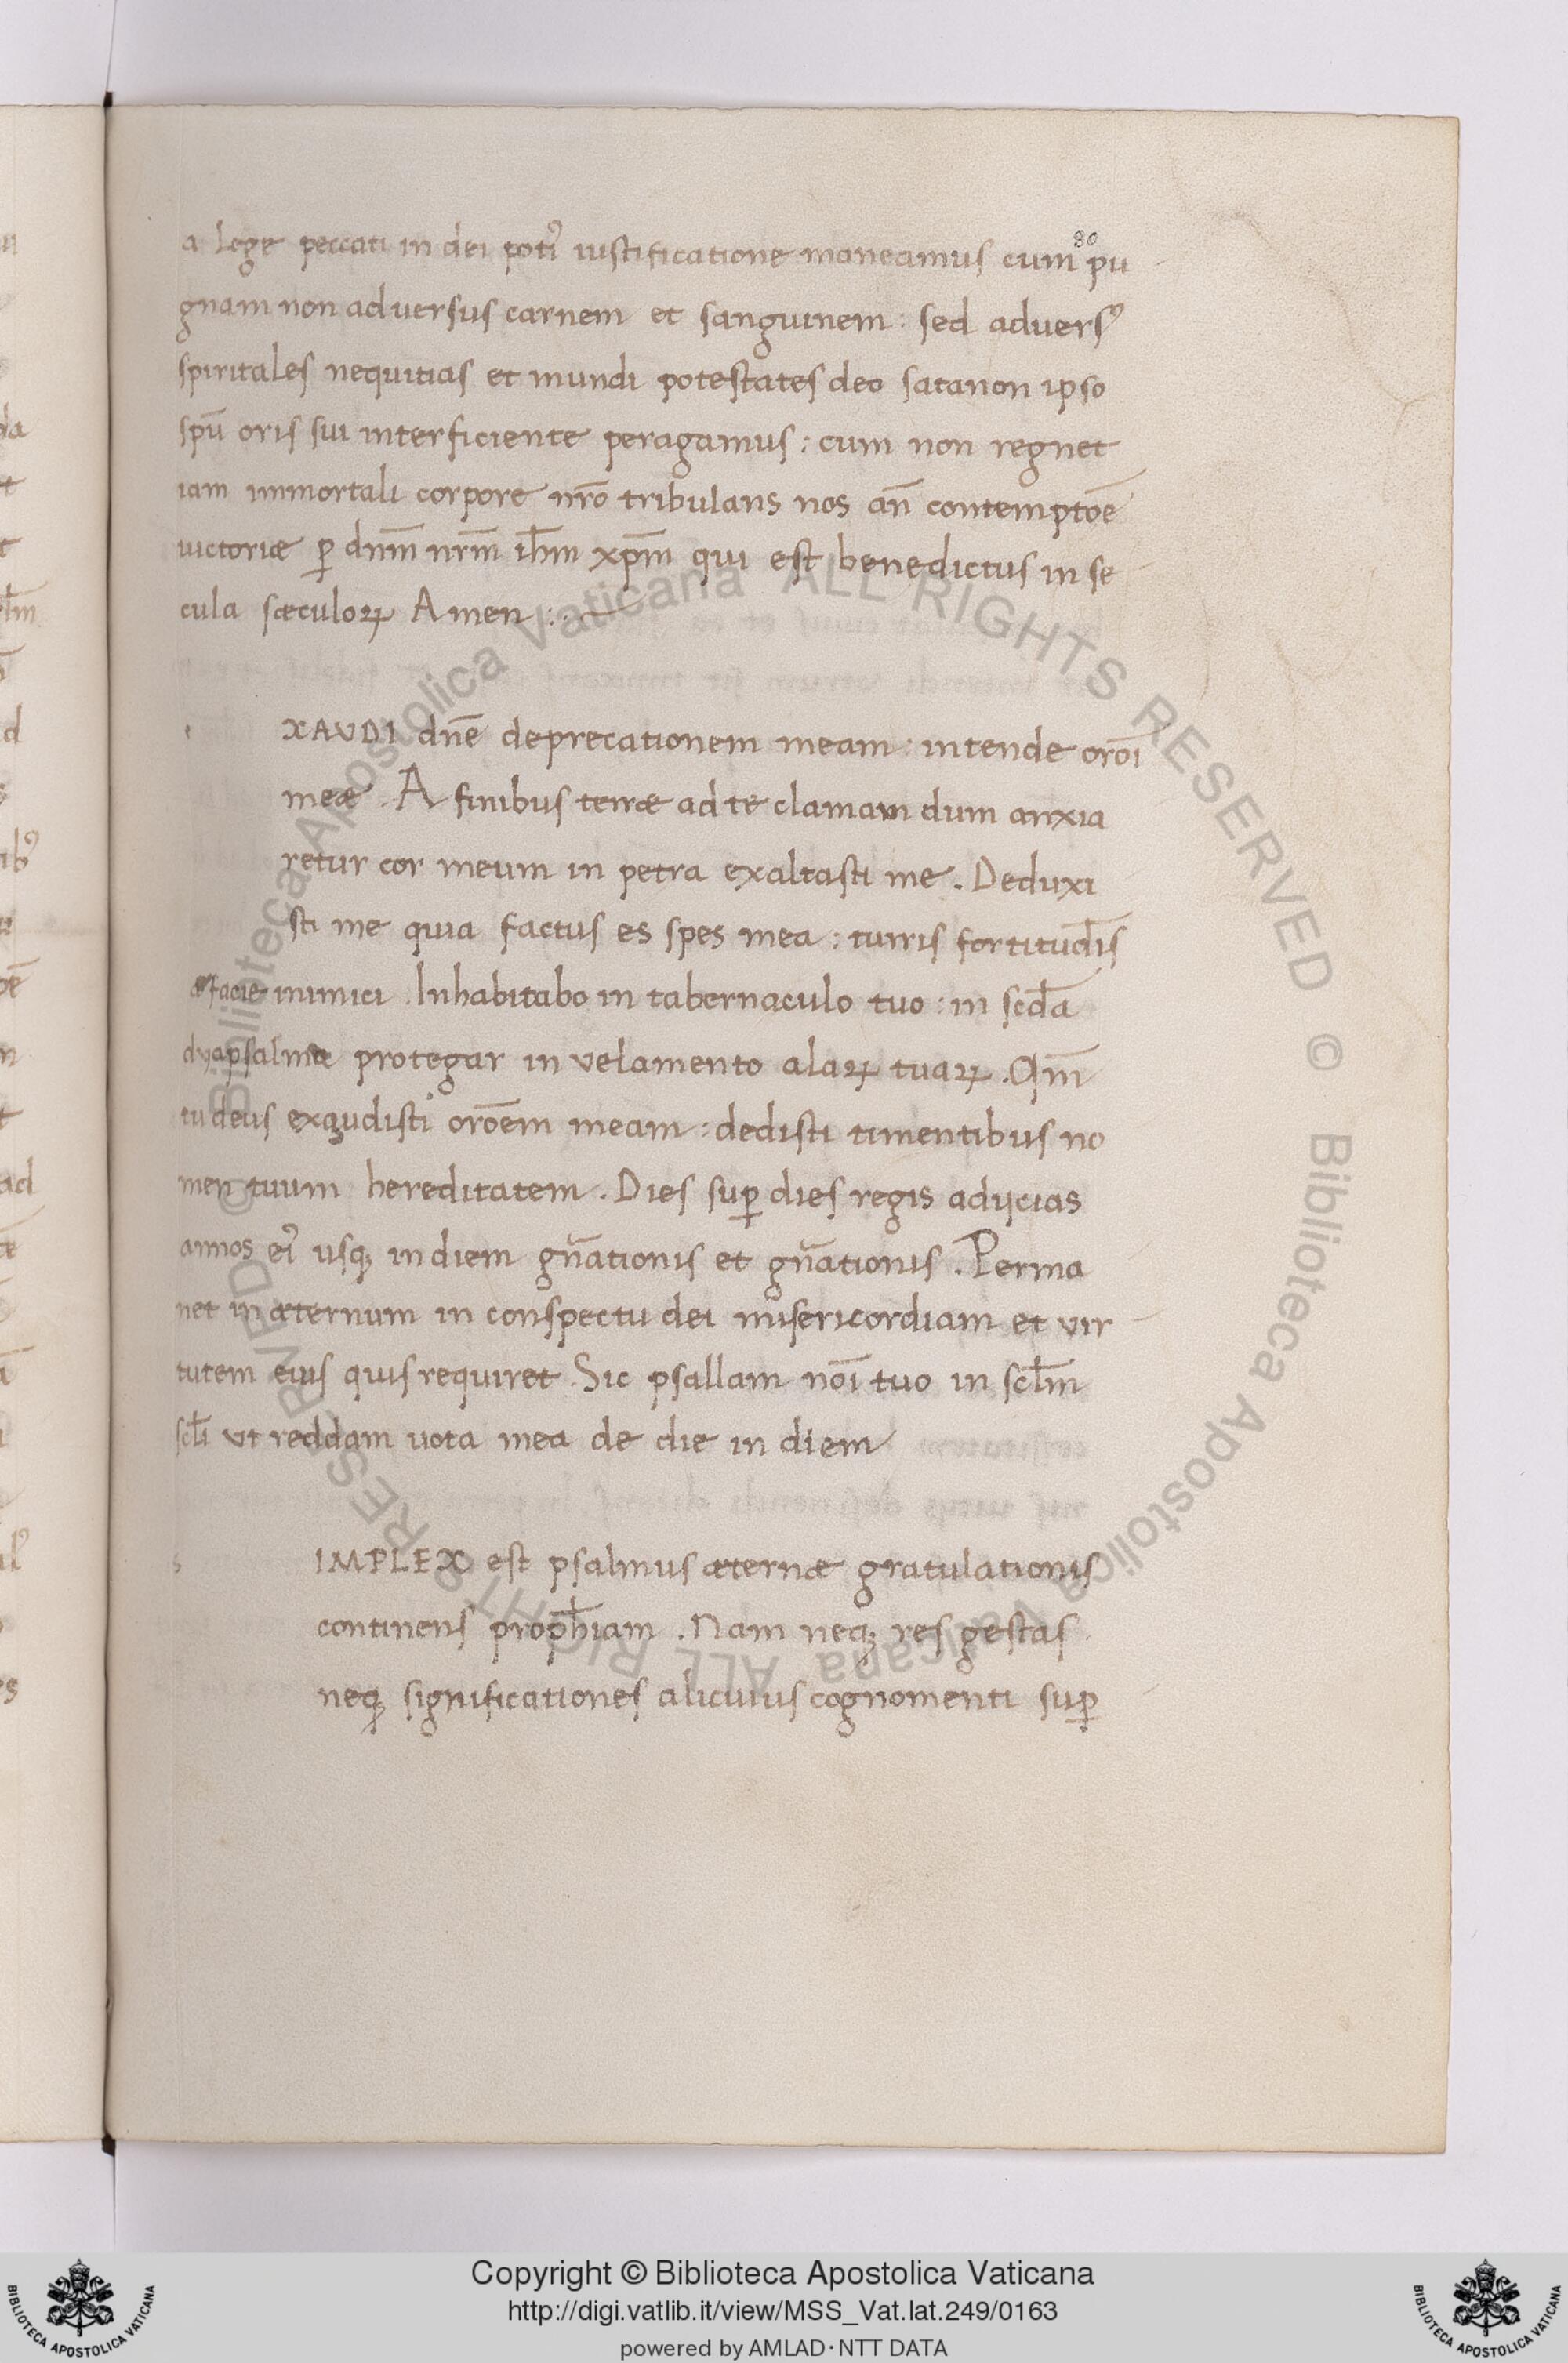 80
a lege peccati in dei poti᷒ iustificatione maneamus cum pu
gnam non aduersus carnem et sanguinem : sed aduersꝰ
spiritales nequitias et mundi potestates deo satanon ipso
spū oris sui interficiente peragamus : cum non regnet
iam immortali corpore nr̄o tribulans nos an̄ contemptōe
uictoriæ ꝑ dnm̄ nrm̄ ihm̄ xpm̄ qui est benedictus in se
cula sæculoꝝ Amen :.
XAVDI dnē deprecationem meam : intende orōi
meæ . A finibus terræ ad te clamaui dum anxia
retur cor meum in petra exaltasti me . Deduxi
sti me quia factus es spes mea : turris fortitud̄is
a facie inimici . Inhabitabo in tabernaculo tuo : in scd̄a
dyapsalma protegar in velamento alaꝝ tuaꝝ . Qm̄
tu deus exaudisti orōem meam : dedisti timentibus no
men tuum hereditatem . Dies suꝑ dies regis adijcias
annos ei᷒ usqꝫ in diem gn̄ationis et gn̄ationis . Perma
net in æternum in conspectu dei misericordiam et vir
tutem eius quis requiret . Sic psallam nōi tuo in scłm
scłi vt reddam uota mea de die in diem
IMPLEX est psalmus æternæ gratulationis
continens proph̄iam . Nam neqꝫ res gestas
neqꝫ significationes alicuius cognomenti suꝑ
Copyright © Biblioteca Apostolica Vaticana
http://digi.vatlib.it/view/MSS_Vat.lat.249/0163
powered by AMLAD·NTT DATA
BIBLIOTECA APOSTOLICA VATICANA
BIBLIOTECA APOSTOLICA VATICANA
© Biblioteca Apostolica Vaticana ALL RIGHTS RESERVED © Biblioteca Apostolica Vaticana ALL RIGHTS RESERVED